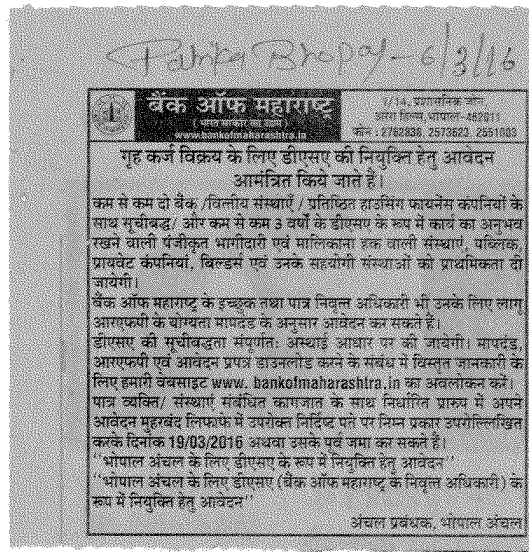 Patrika Bhopal - 6/3/16
बैंक ऑफ महाराष्ट्र
(भारत सरकार का उद्यम)
www.bankofmaharashtra.in
1/14, प्रशासनिक जोन,
अरेरा हिल्स, भोपाल-462011
फोन : 2762838, 2573623, 2551083
गृह कर्ज विक्रय के लिए डीएसए की नियुक्ति हेतु आवेदन
आमंत्रित किये जाते हैं।
कम से कम दो बैंक /वित्तीय संस्थाएँ / प्रतिष्ठित हाउसिंग फायनेंस कंपनियों के
साथ सूचीबद्ध/ और कम से कम 3 वर्षों के डीएसए के रूप में कार्य का अनुभव
रखने वाली पंजीकृत भागीदारी एवं मालिकाना हक वाली संस्थाएं, पब्लिक,
प्रायवेट कंपनियां, बिल्डर्स एवं उनके सहयोगी संस्थाओं को प्राथमिकता दी
जायेगी।
बैंक ऑफ महाराष्ट्र के इच्छुक तथा पात्र निवृत्त अधिकारी भी उनके लिए लागू
आरएफपी के योग्यता मापदंड के अनुसार आवेदन कर सकते हैं।
डीएसए की सूचीबद्धता संपूर्णत: अस्थाई आधार पर की जायेगी। मापदंड,
आरएफपी एवं आवेदन प्रपत्र डाउनलोड करने के संबंध में विस्तृत जानकारी के
लिए हमारी वेबसाइट www. bankofmaharashtra.in का अवलोकन करें।
पात्र व्यक्ति/ संस्थाएं संबंधित कागजात के साथ निर्धारित प्रारुप में अपने
आवेदन मुहरबंद लिफाफे में उपरोक्त निर्दिष्ट पते पर निम्न प्रकार उपरोल्लिखित
करके दिनांक 19/03/2016 अथवा उसके पूर्व जमा कर सकते हैं।
''भोपाल अंचल के लिए डीएसए के रूप में नियुक्ति हेतु आवेदन''
''भोपाल अंचल के लिए डीएसए (बैंक ऑफ महाराष्ट्र के निवृत्त अधिकारी) के
रूप में नियुक्ति हेतु आवेदन''
अंचल प्रबंधक, भोपाल अंचल